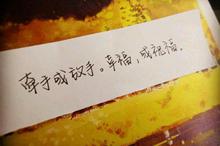 牵手或放手。幸福,或祝福。